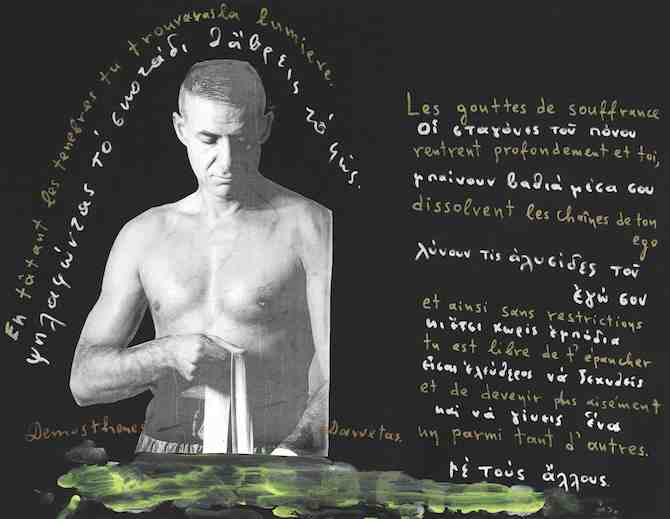 En tâtant les tenebres tu trouveras la lumiere.
ψηλαφώντας τό σκοτάδι θἄβρεις τό φῶς.
Les gouttes de souffrance
Οἱ σταγόνες τοῦ πόνου
rentrent profondement et toi,
μπαίνουν βαθιά μέσα σου
dissolvent les chaînes de ton
ego
λύνουν τις ἁλυσίδες τοῦ
ἐγώ σου
et ainsi sans restrictions
κι ἔτσι χωρίς ἐμπόδια
tu est libre de t'épancher
εἶσαι ἐλεύθερος νά ξεχυθεῖς
et de devenir plus aisément
καί νά γίνεις ἕνα
un parmi tant d'autres.
μέ τούς ἄλλους.
Demosthenes Davvetas